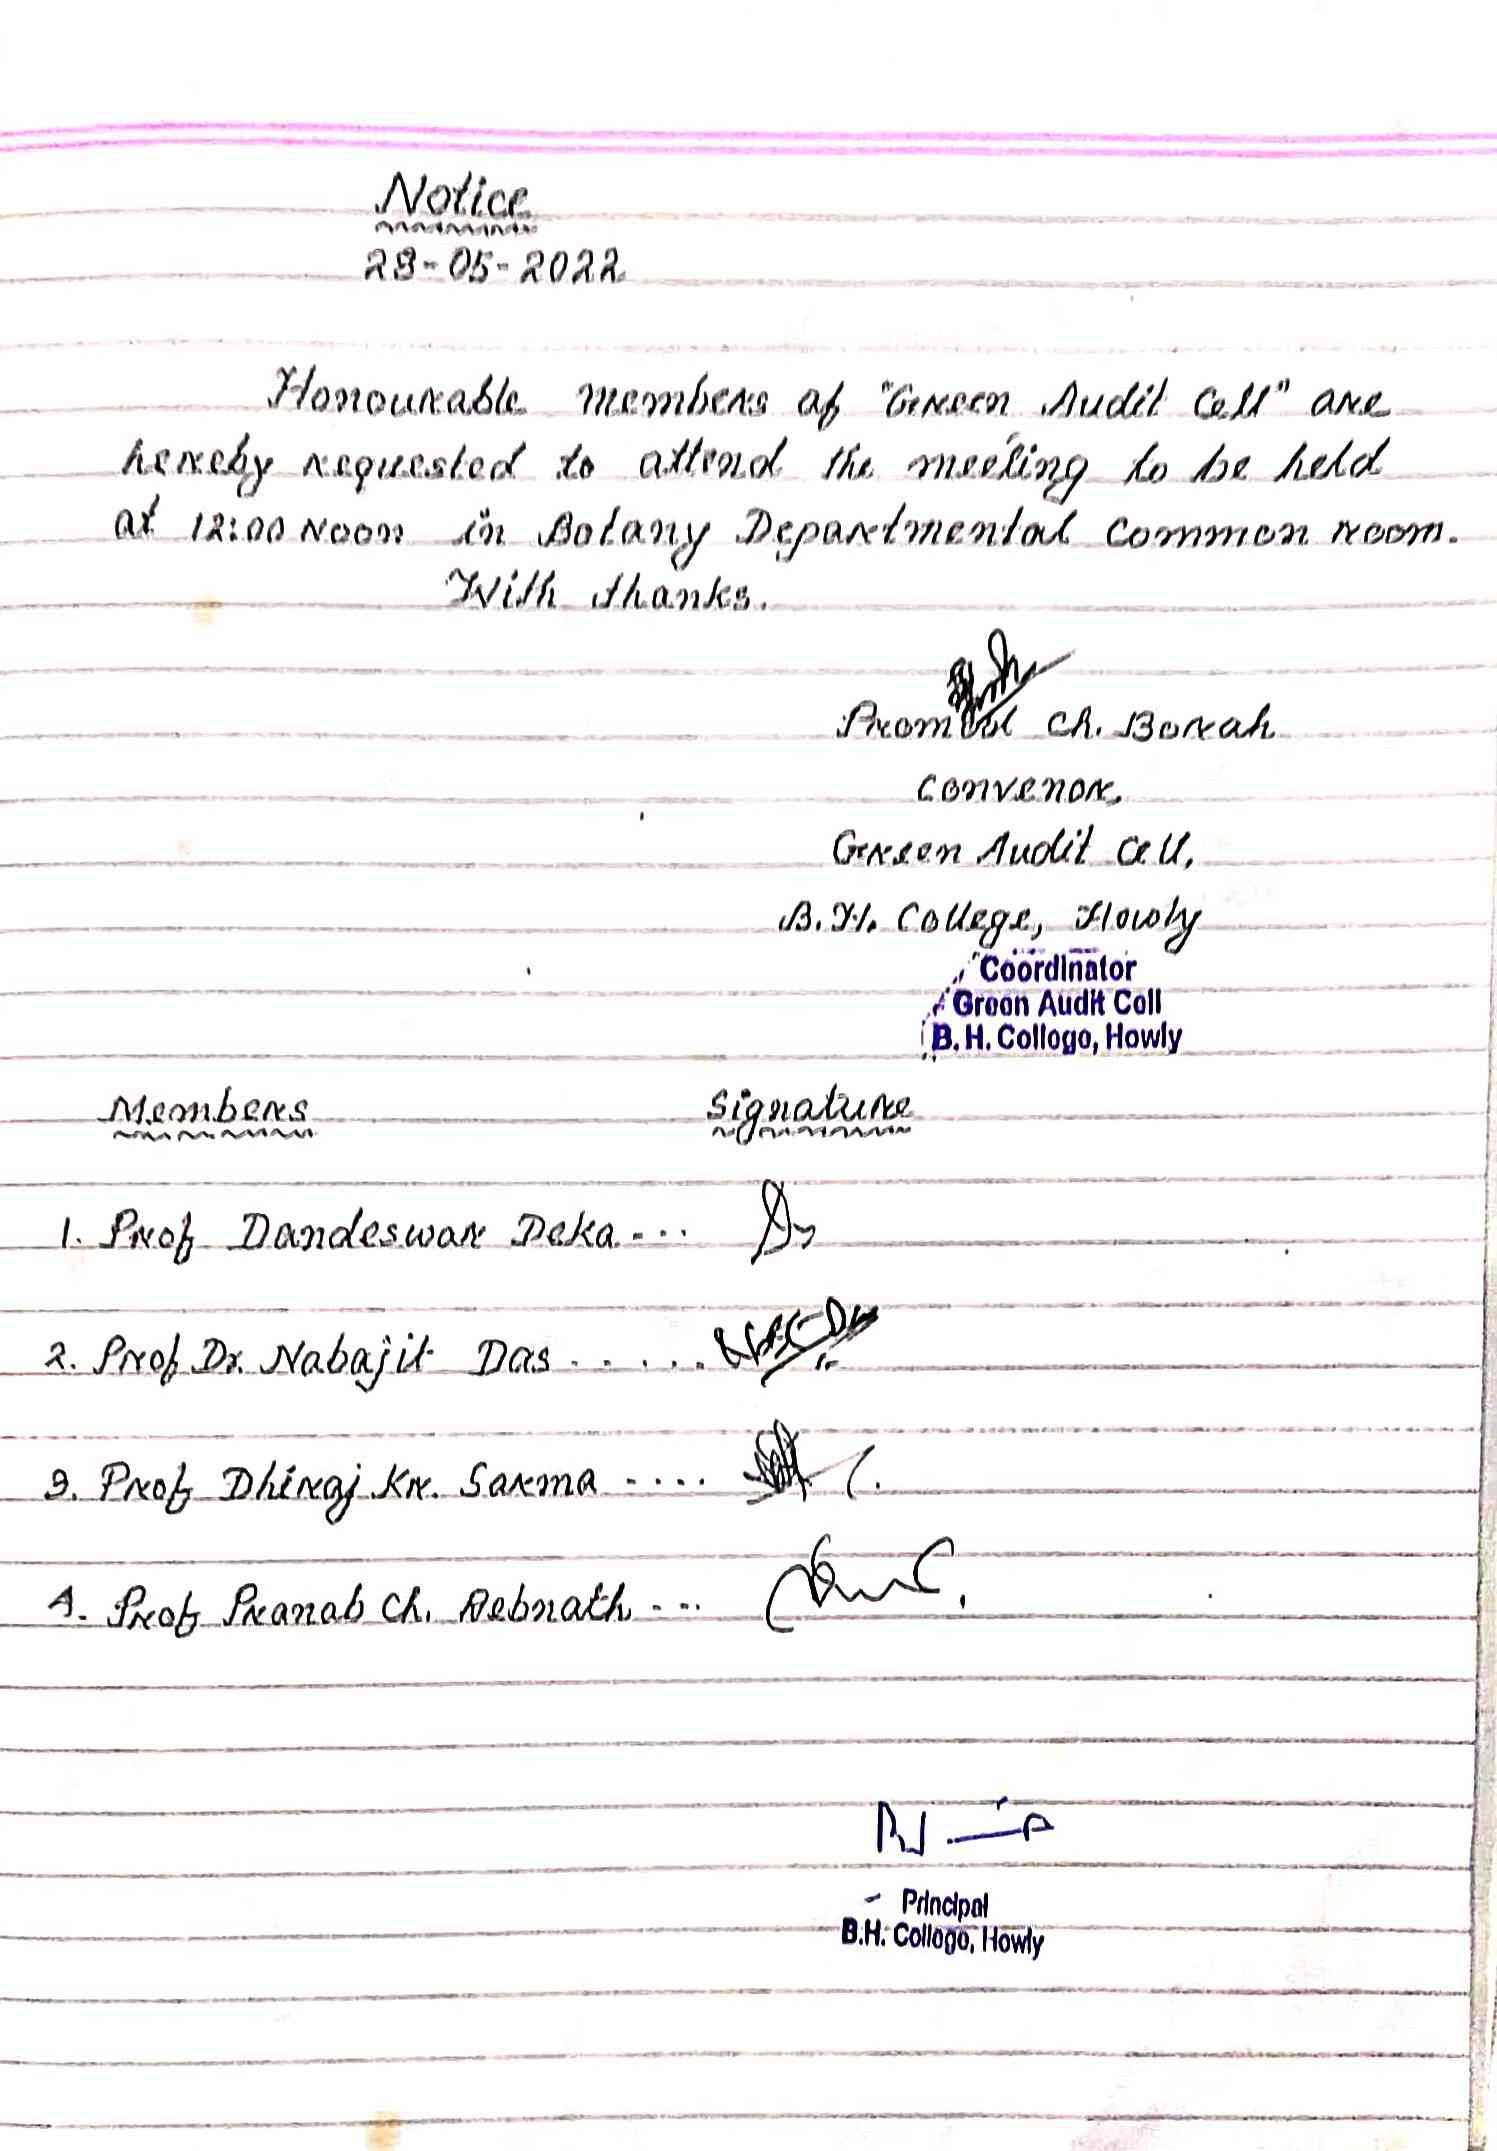 Notice
28-05-2022
Honourable members of "Green Audit Cell" are
hereby requested to attend the meeting to be held
at 12:00 Noon in Botany Departmental Common room.
With thanks.
Ch. Borah
Convenor,
Green Audit Cell,
B.H. College, Howly
Coordinator
Green Audit Cell
B. H. College, Howly
Members Signature
1. Prof Dandeswar Deka ....
2. Prof Dr. Nabajit Das ......
3. Prof Dhiraj Kr. Sarma ....
4. Prof Pranab Ch. Debnath ...
Principal
B.H. College, Howly